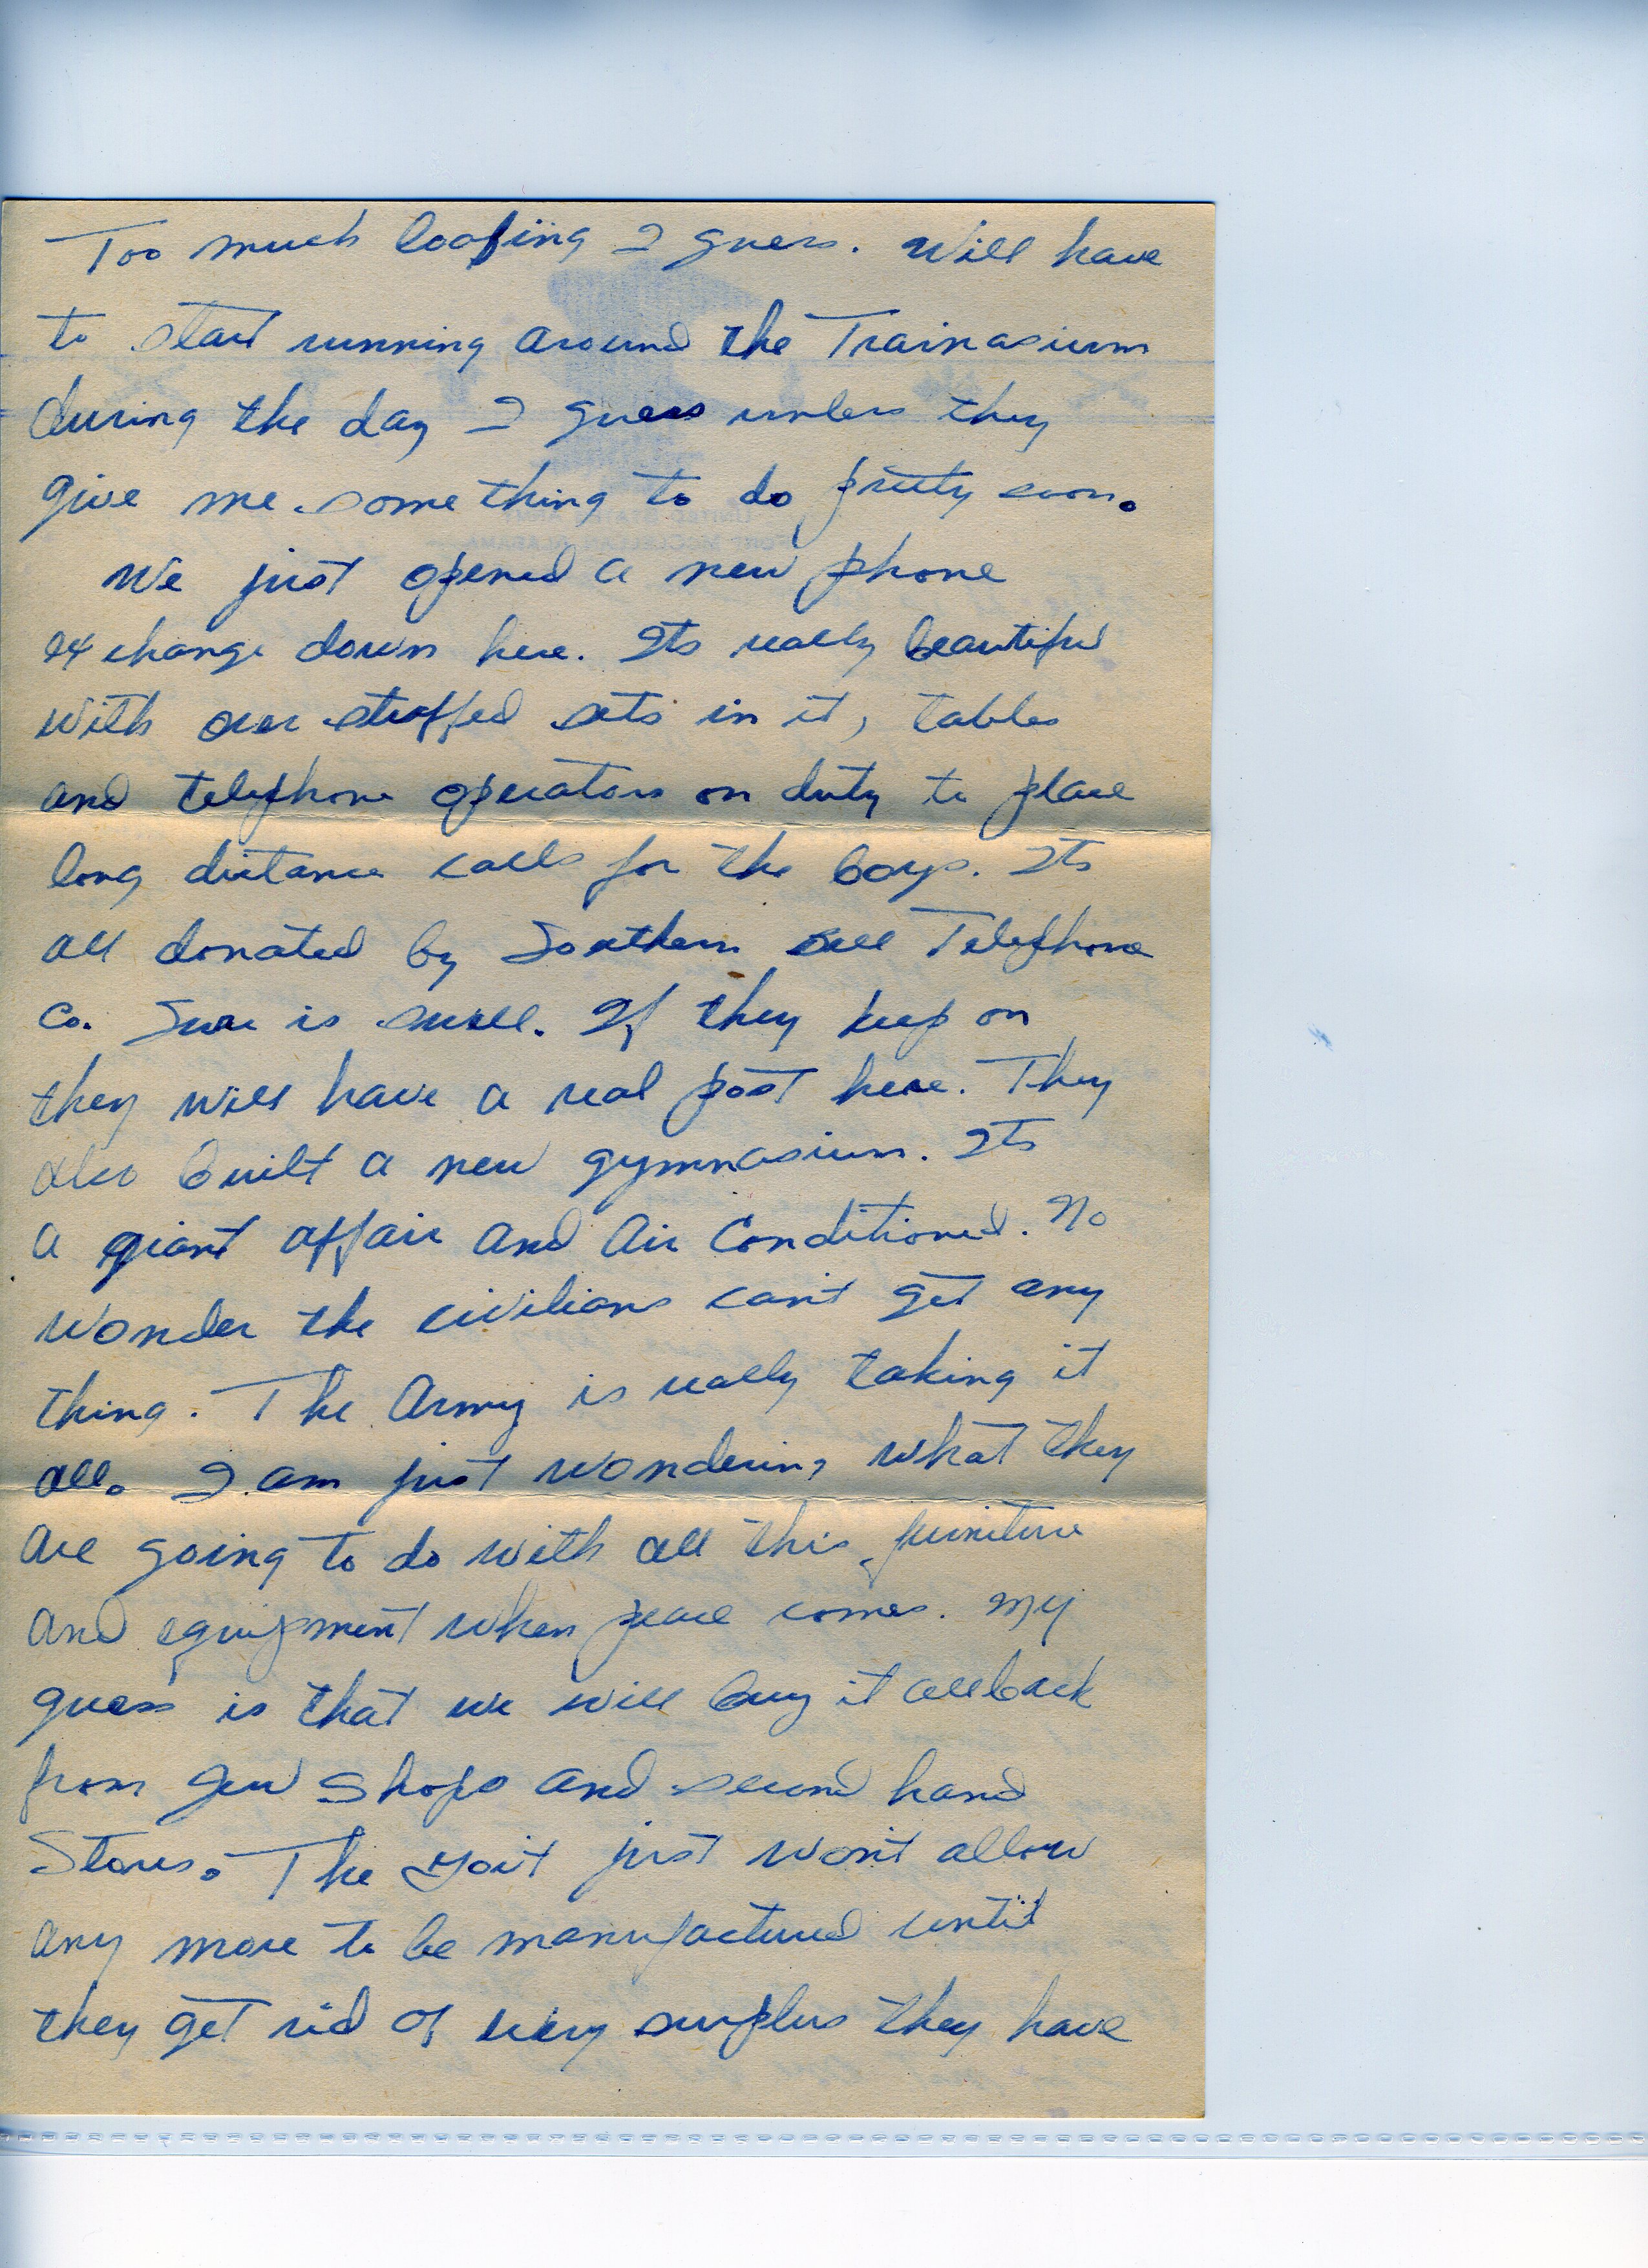 Too much loafing I guess. Will have
to start running around the Trainasium
during the day I guess unless they
give me something to do pretty soon.
We just opened a new phone
exchange down here. Its really beautiful
with over stuffed sets in it, tables
and telephone operators on duty to place
long distance calls for the boys. Its
all donated by Southern Bell Telephone
Co. Sure is swell. If they keep on
they will have a real post here. They
also built a new gymnasium. Its
a giant affair and Air Conditioned. No
wonder the civilians can't get any
thing. The Army is really taking it
all. I am just wondering what they
are going to do with all this furniture
and equipment when peace comes. My
guess is that we will buy it all back
from Jew Shops and second hand
Stores. The Gov't just won't allow
any more to be manufactured until
they get rid of every surplus they have
UNITED STATES ARMY
FORT McCLELLAN, ALABAMA